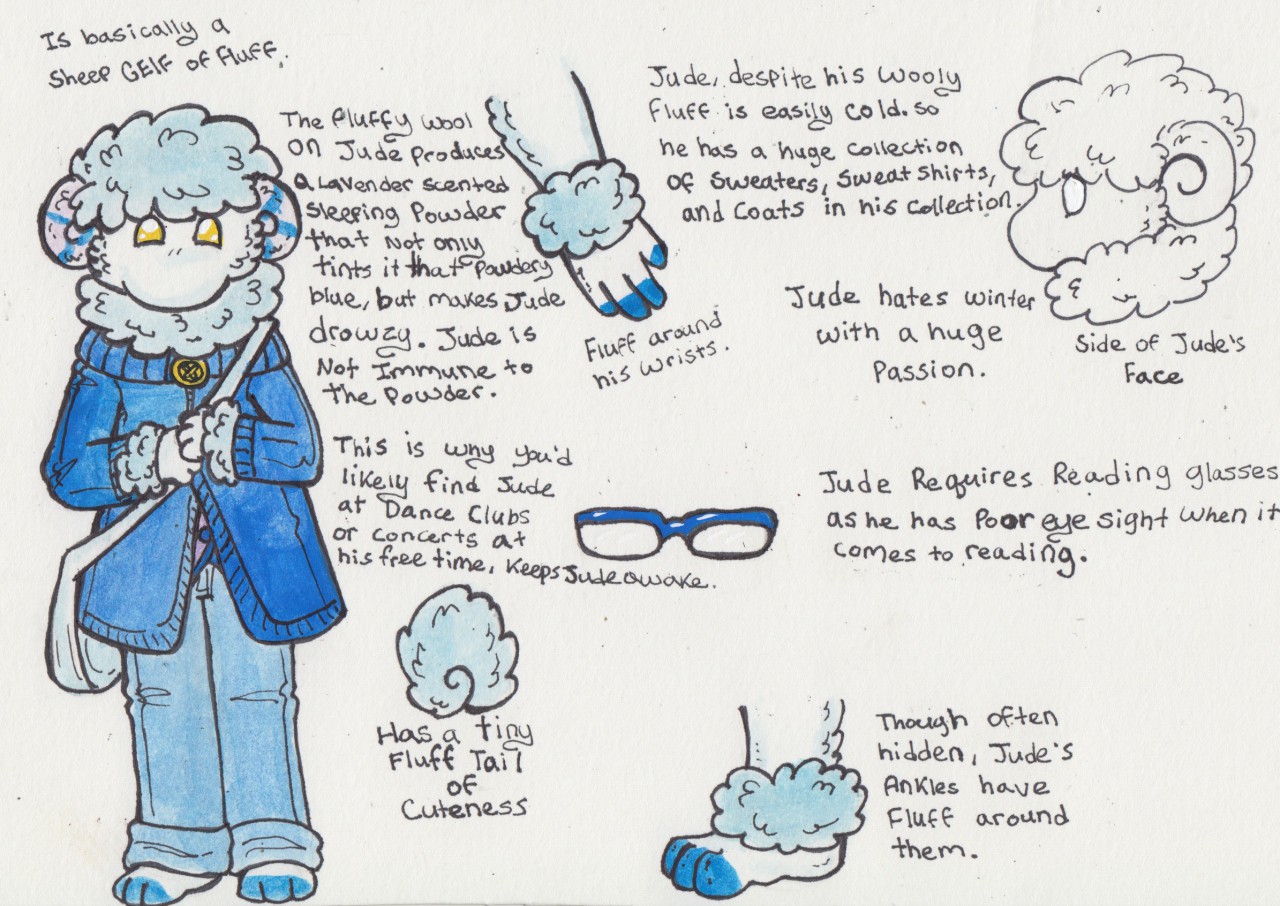 Is basically a
Sheep GElf of Fluff.
The fluffy wool
on Jude Produces
a Lavender scented
Sleeping Powder
that Not only
tints it that Powdery
blue, but makes Jude
drowzy. Jude is
Not Immune to
The Powder.
This is why you'd
likely find Jude
at Dance Clubs
or concerts at
his free time, Keeps Jude awake.
Fluff around
his wrists.
Jude, despite his wooly
Fluff is easily cold. so
he has a huge collection
of sweaters, sweatshirts,
and Coats in his collection.
Jude hates winter
with a huge
Passion.
Side of Jude's
Face
Jude Requires Reading glasses
as he has Poor eye sight when it
comes to reading.
Has a tiny
Fluff Tail
of
Cuteness
Though often
hidden, Jude's
Ankles have
Fluff around
them.